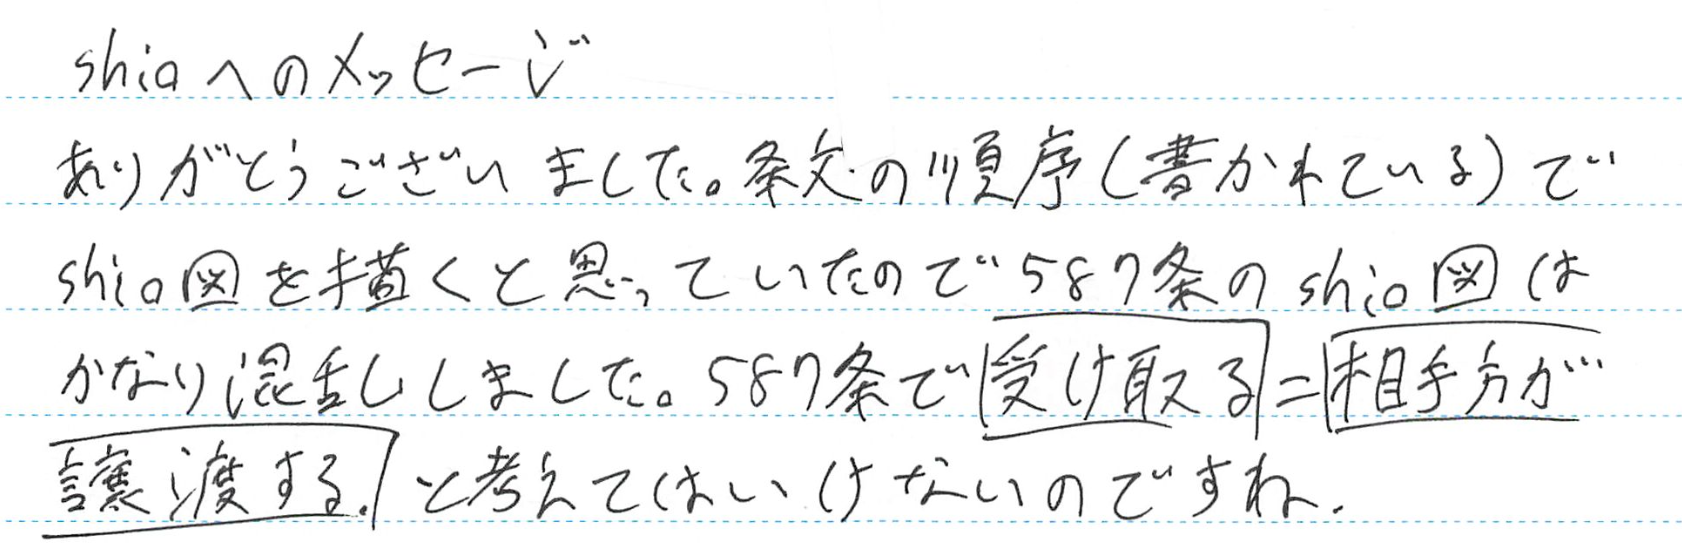 shioへのメッセージ
ありがとうございました。条文の順序(書かれている)で
shio図を描くと思っていたので587条のshio図は
かなり混乱しました。587条で受け取る=相手方が
譲渡する.と考えてはいけないのですね.